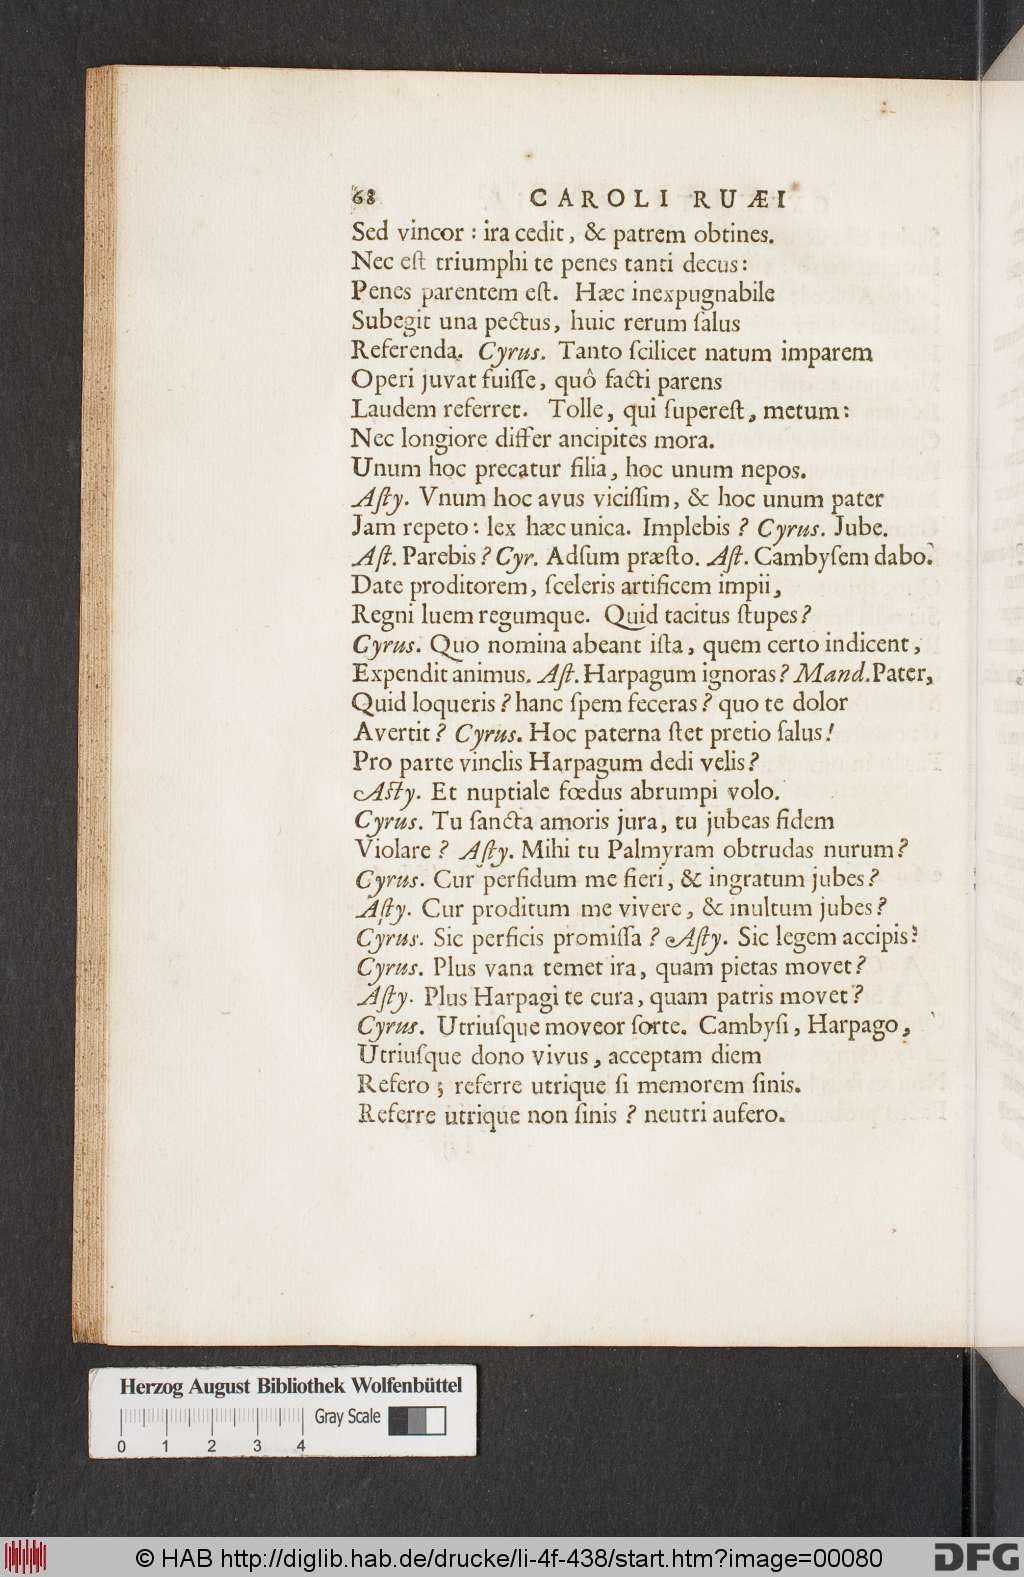 68 CAROLI RUÆI
Sed vincor : ira cedit, & patrem obtines.
Nec eſt triumphi te penes tanti decus:
Penes parentem eſt. Hæc inexpugnabile
Subegit una pectus, huic rerum ſalus
Referenda. Cyrus. Tanto ſcilicet natum imparem
Operi juvat fuiſſe, quô facti parens
Laudem referret. Tolle, qui ſupereſt, metum:
Nec longiore differ ancipites mora.
Unum hoc precatur filia, hoc unum nepos.
Aſty. Vnum hoc avus viciſſim, & hoc unum pater
Jam repeto: lex hæc unica. Implebis? Cyrus. Jube.
Aſt. Parebis? Cyr. Adſum præſto. Aſt. Cambyſem dabo.
Date proditorem, ſceleris artificem impii,
Regni luem regumque. Quid tacitus ſtupes?
Cyrus. Quo nomina abeant iſta, quem certo indicent,
Expendit animus. Aſt. Harpagum ignoras? Mand. Pater,
Quid loqueris? hanc ſpem feceras? quo te dolor
Avertit? Cyrus. Hoc paterna ſtet pretio ſalus!
Pro parte vinclis Harpagum dedi velis?
Aſty. Et nuptiale fœdus abrumpi volo.
Cyrus. Tu ſancta amoris jura, tu jubeas fidem
Violare? Aſty. Mihi tu Palmyram obtrudas nurum?
Cyrus. Cur perfidum me fieri, & ingratum jubes?
Aſty. Cur proditum me vivere, & inultum jubes?
Cyrus. Sic perficis promiſſa? Aſty. Sic legem accipis?
Cyrus. Plus vana temet ira, quam pietas movet?
Aſty. Plus Harpagi te cura, quam patris movet?
Cyrus. Utriuſque moveor ſorte. Cambyſi, Harpago,
Utriuſque dono vivus, acceptam diem
Refero; referre utrique ſi memorem ſinis.
Referre utrique non ſinis? neutri aufero.
Herzog August Bibliothek Wolfenbüttel
Gray Scale
0 1 2 3 4
© HAB http://diglib.hab.de/drucke/li-4f-438/start.htm?image=00080
DFG